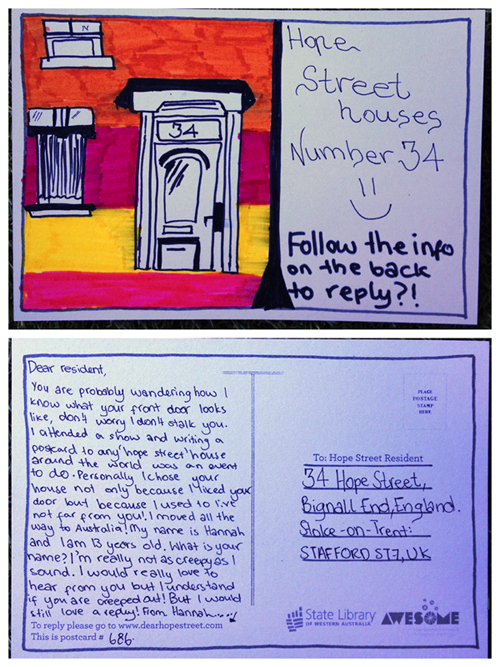 34
Hope
Street
houses
Number 34
Follow the info
on the back
to reply?!
Dear resident,
You are probably wandering how I
know what your front door looks
like, don't worry I don't stalk you.
I attended a show and writing a
postcard to any 'hope street' house
around the world was an event
to do. Personally I chose your
house not only because I liked your
door but because I used to live
not far from you! I moved all the
way to Australia! My name is Hannah
and I am 13 years old. What is your
name? I'm really not as creepy as I
sound. I would really love to
hear from you but I understand
if you are creeped out! But I would
still love a reply! From Hannah
To reply please go to www.dearhopestreet.com
This is postcard # 686.
PLACE
POSTAGE
STAMP
HERE
To: Hope Street Resident
34 Hope Street,
Bignall End, England.
Stoke-on-Trent:
STAFFORD ST7, UK
State Library
OF WESTERN AUSTRALIA
AWESOME